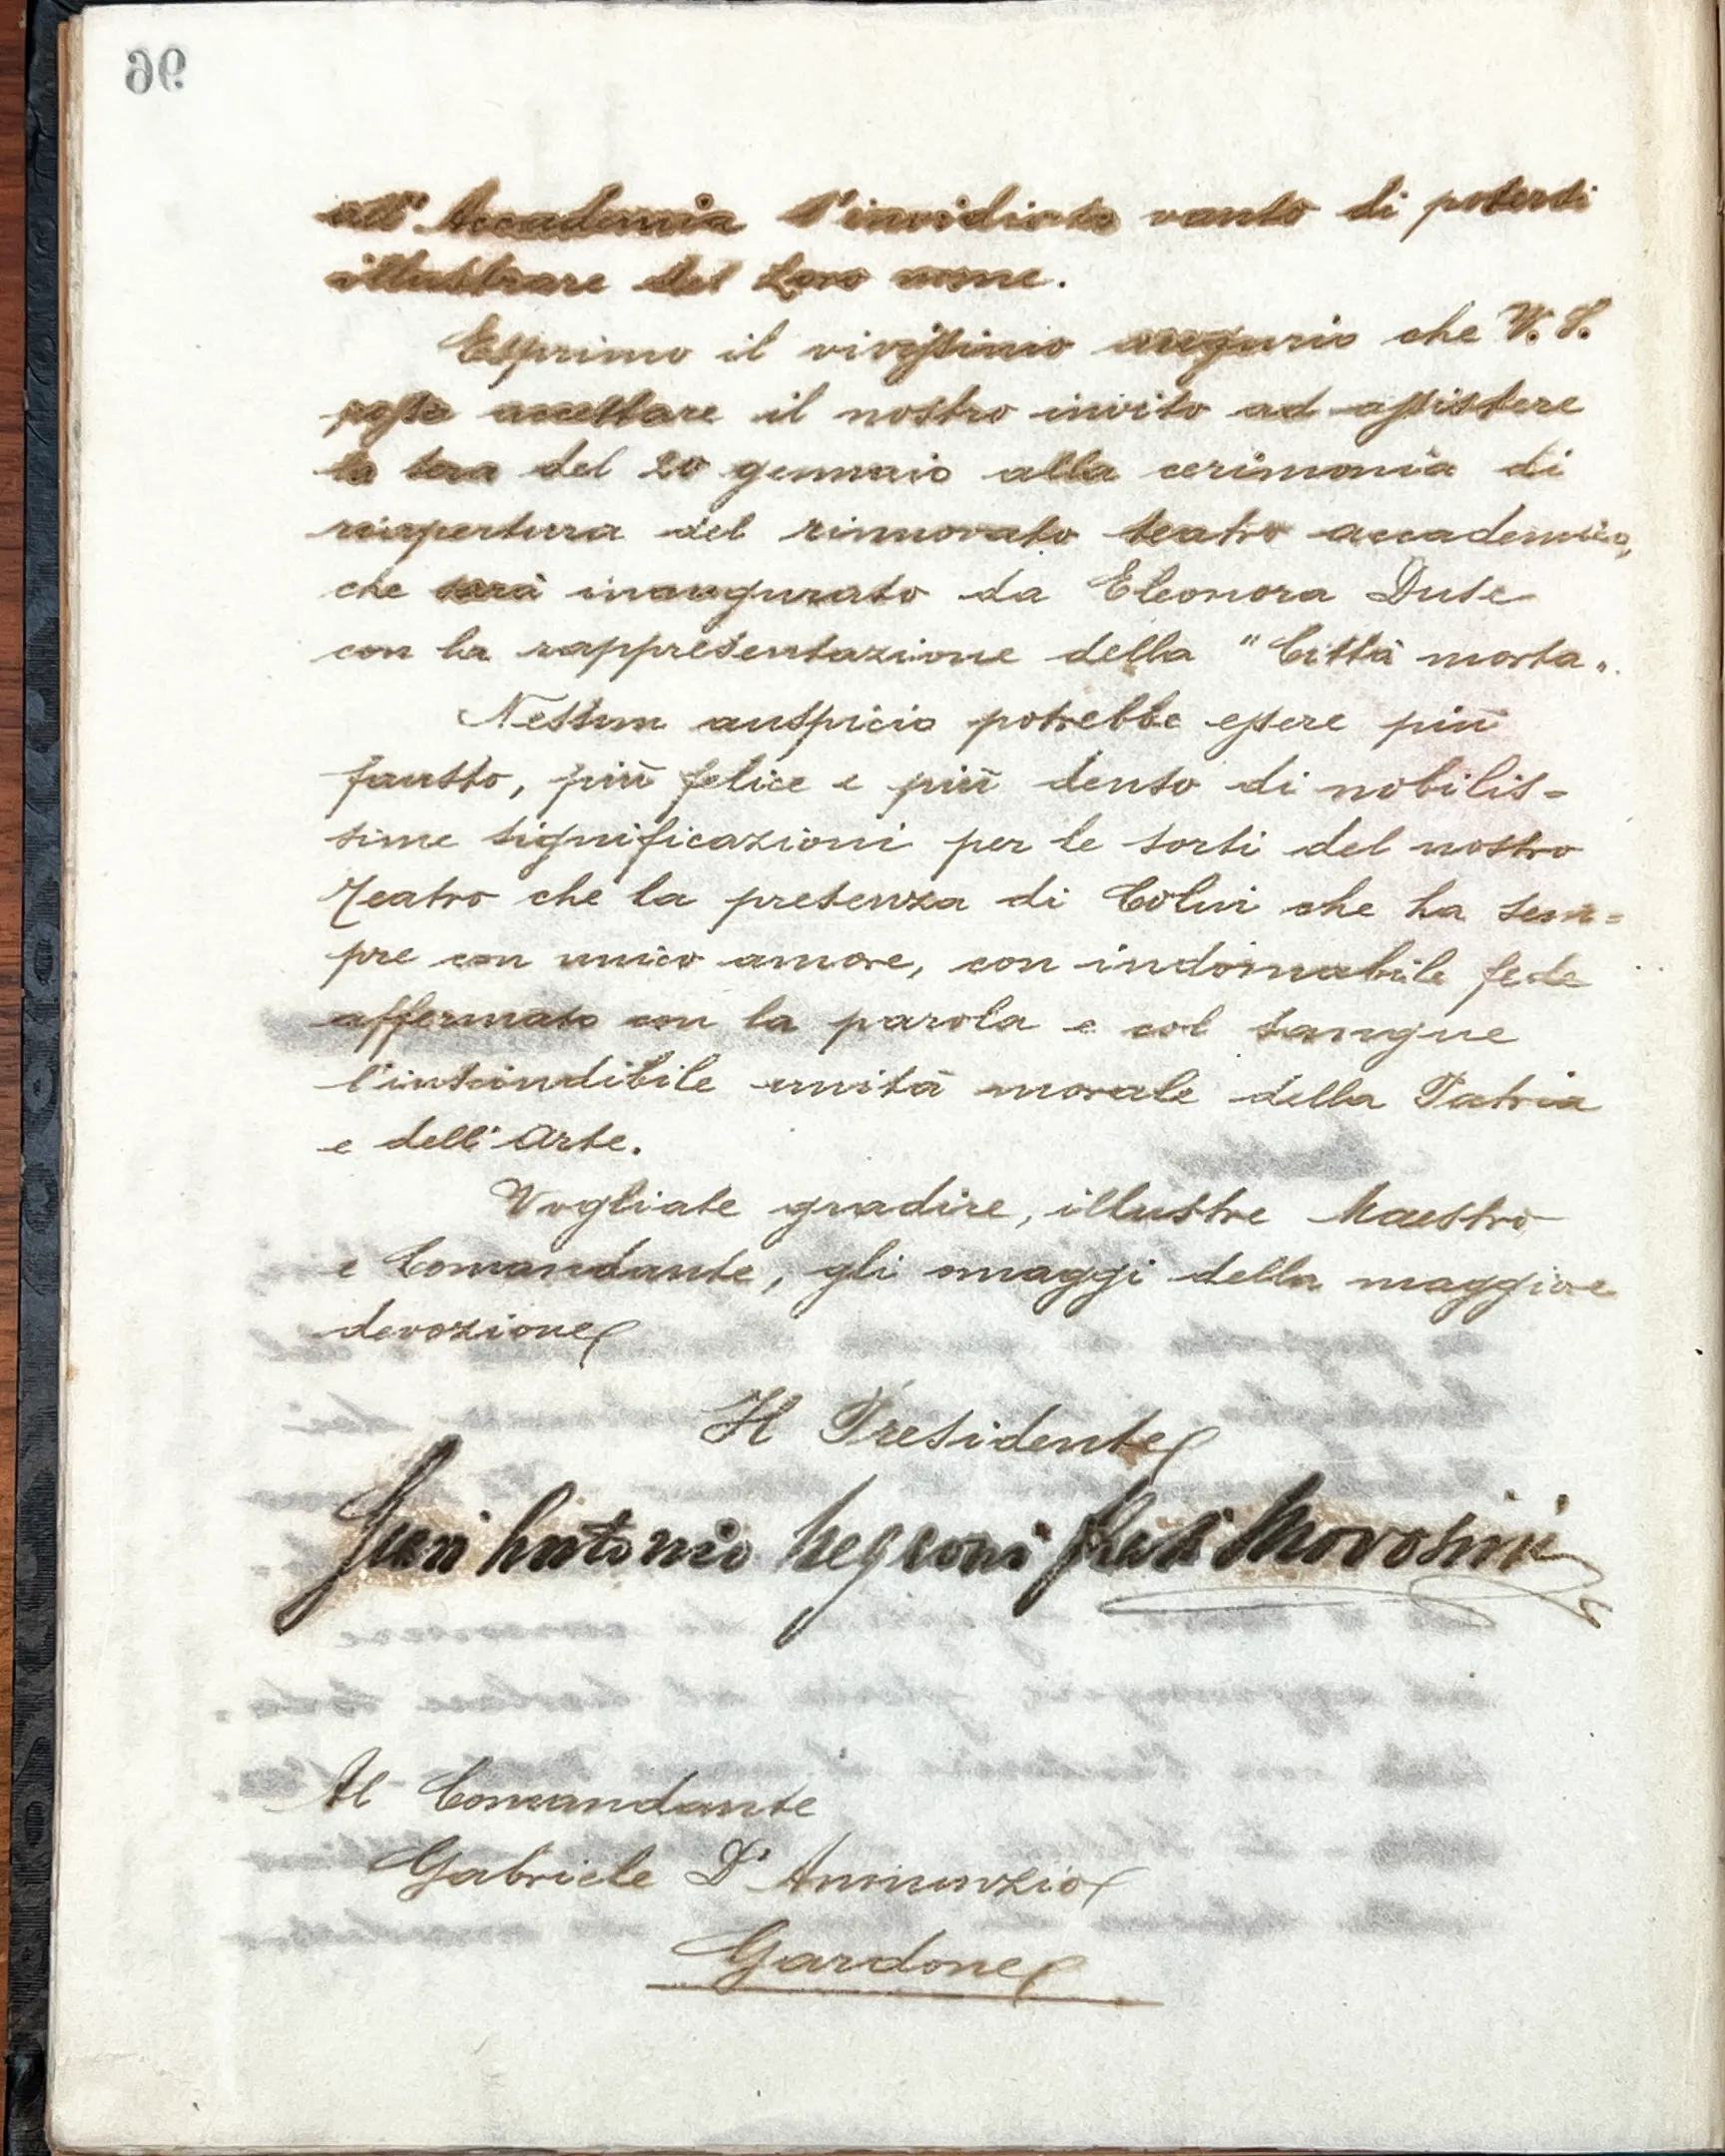 96
all'Accademia l'invidiato vanto di potersi
illustrare del Loro nome.
Esprimo il vivissimo augurio che V. S.
possa accettare il nostro invito ad assistere
la sera del 20 gennaio alla cerimonia di
riapertura del rinnovato teatro accademico,
che sarà inaugurato da Eleonora Duse
con la rappresentazione della "Città morta„.
Nessun auspicio potrebbe essere più
fausto, più felice e più denso di nobilis=
sime significazioni per le sorti del nostro
Teatro che la presenza di Colui che ha sem=
pre con unico amore, con indomabile fede
affermato con la parola e col sangue
l'inscindibile unità morale della Patria
e dell'Arte.
Vogliate gradire, illustre Maestro
e Comandante, gli omaggi della maggiore
devozione
Il Presidente
Antonio Morosini
Al Comandante
Gabriele D'Annunzio
Gardone